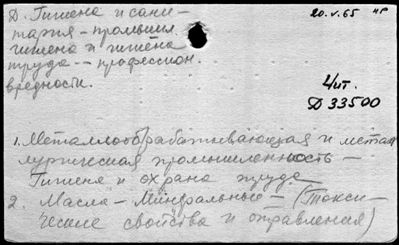 Д. Гигиена и сани-
тария - промышл.
гигиена и гигиена
труда -- професcион.
вредности.
20.V.65 ЧР
Чит.
Д 33500
1. Металлообрабатывающая и метал
лургическая промышленность -
Гигиена и охрана труда
2. Масла - Минеральные - (Токси-
ческие свойства и отравления)